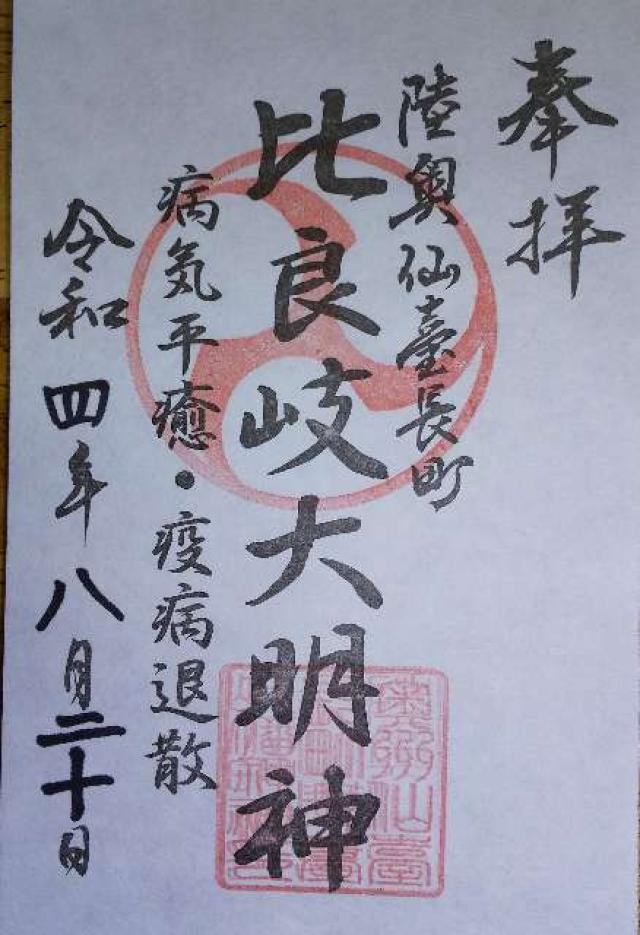 奉拝
陸奥仙臺長町
比良岐大明神
病気平癒・疫病退散
令和四年八月二十日